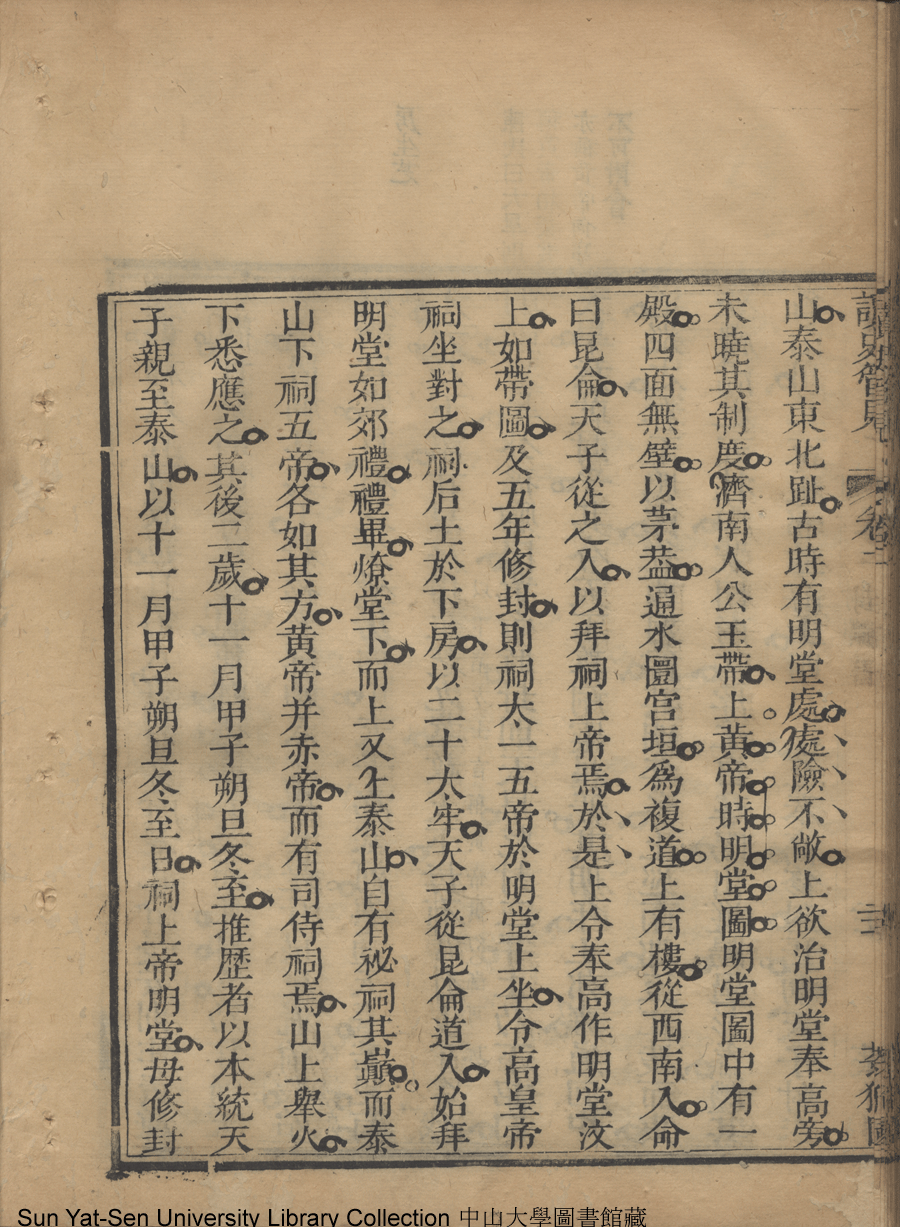 讀史管見 卷二
山泰山東北趾古時有明堂處處險不敞上欲治明堂奉高旁
未曉其制度濟南人公玉帶上黃帝時明堂圖明堂圖中有一
殿四面無壁以茅葢通水圜宮垣爲複道上有樓從西南入命
曰昆侖天子從之入以拜祠上帝焉於是上令奉高作明堂汶
上如帶圖及五年修封則祠太一五帝於明堂上坐令高皇帝
祠坐對之祠后土於下房以二十太牢天子從昆侖道入始拜
明堂如郊禮禮畢燎堂下而上又上泰山自有祕祠其巔而泰
山下祠五帝各如其方黃帝并赤帝而有司侍祠焉山上舉火
下悉應之其後二歲十一月甲子朔旦冬至推歷者以本統天
子親至泰山以十一月甲子朔旦冬至日祠上帝明堂毋修封
Sun Yat-Sen University Library Collection 中山大學圖書館藏